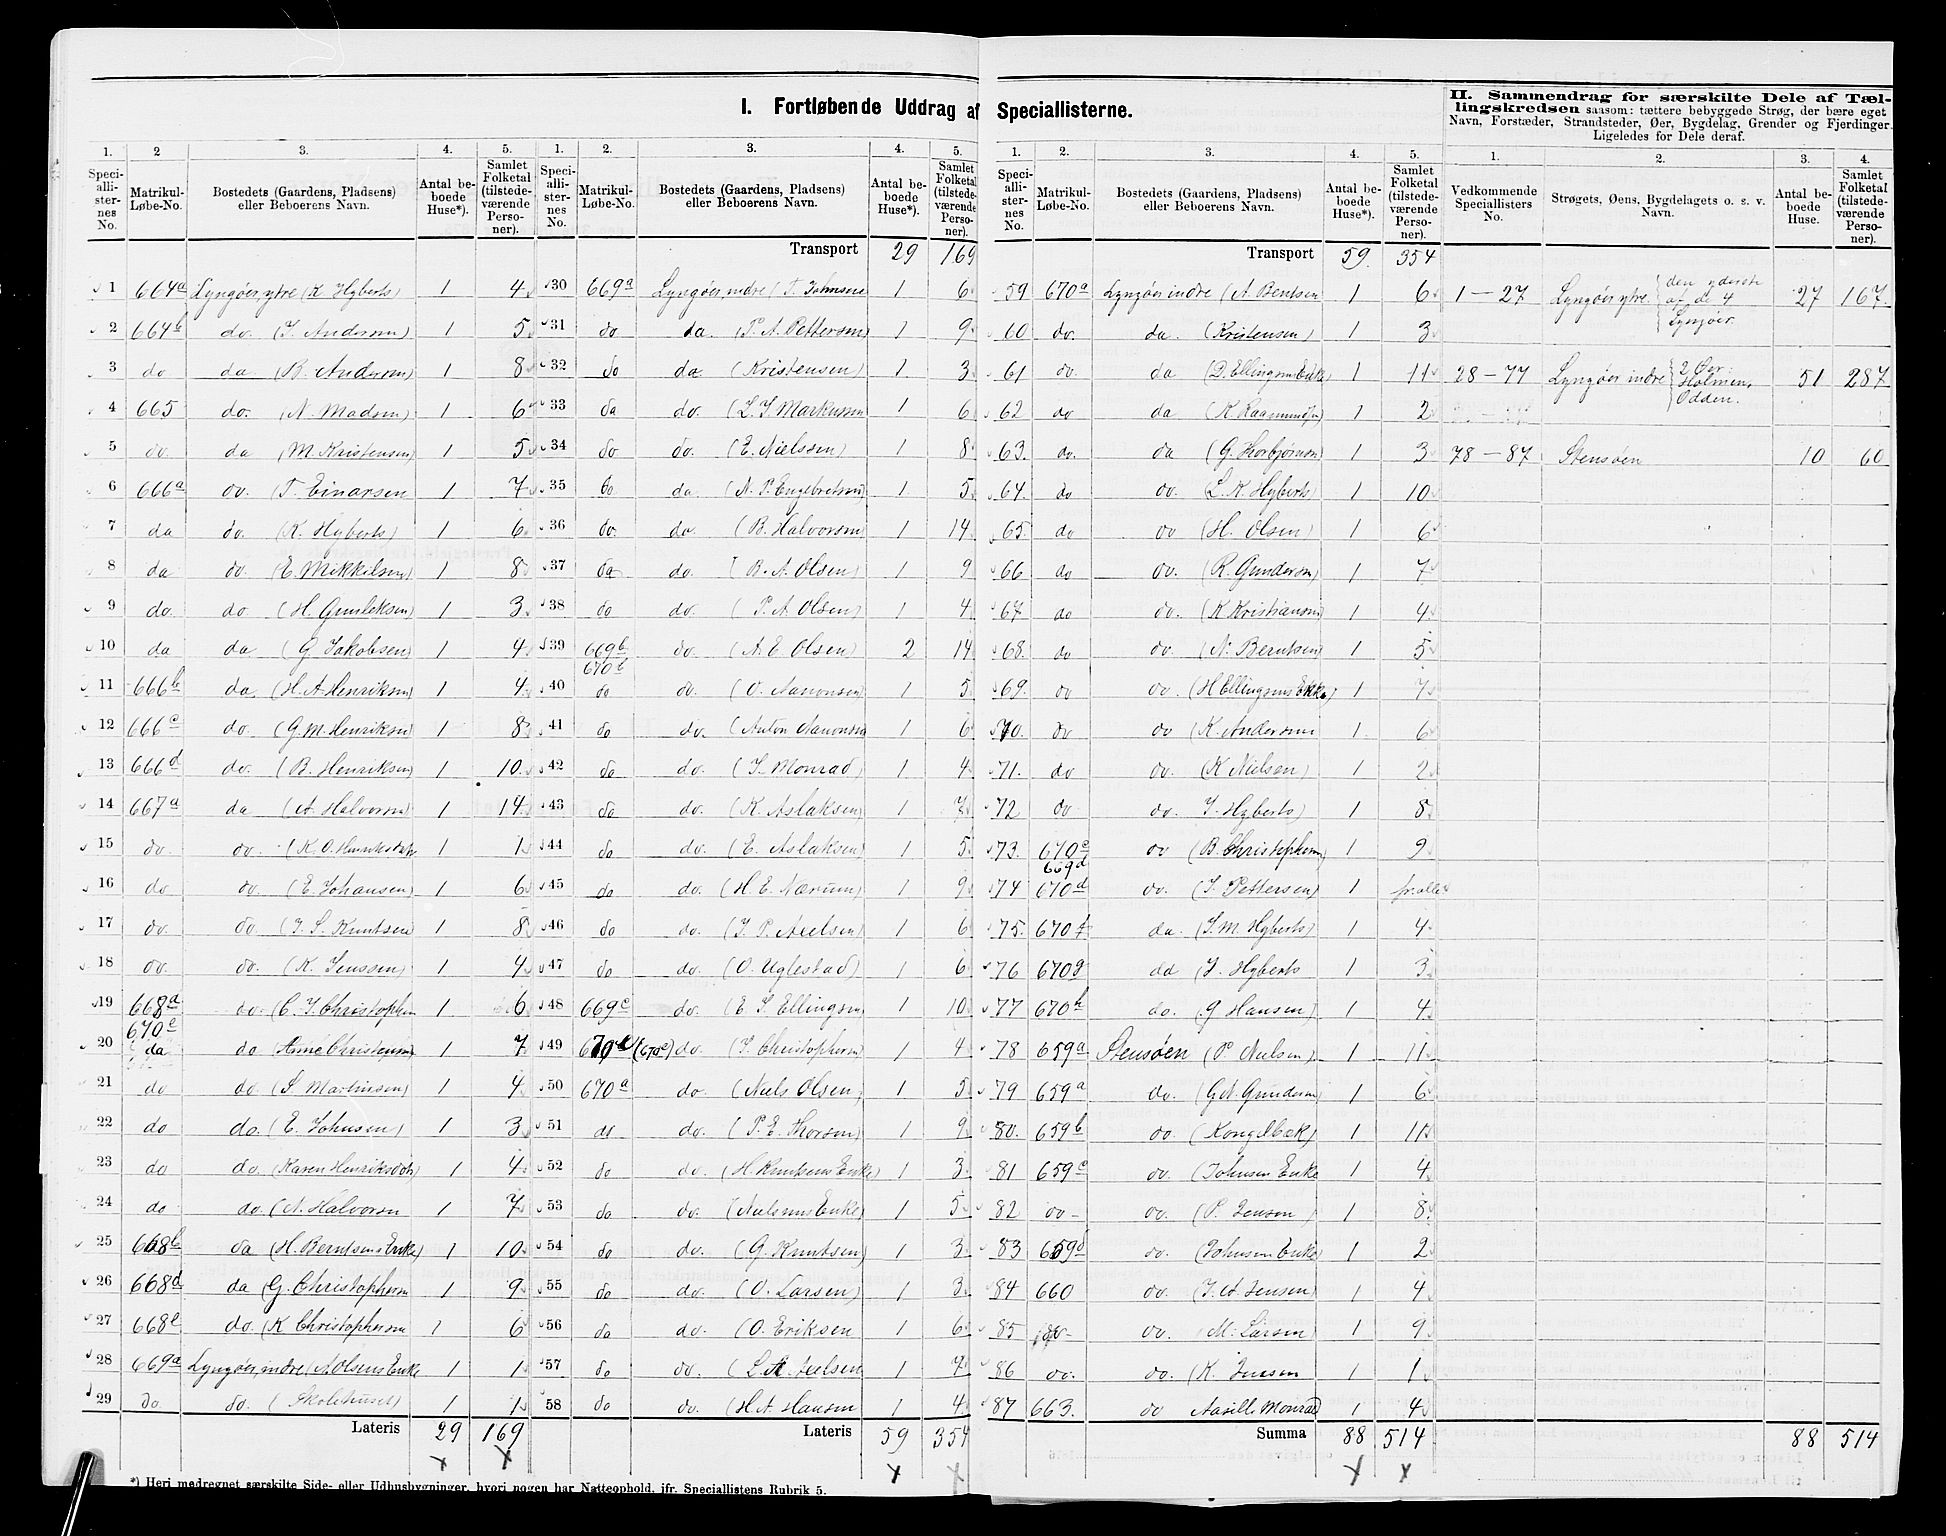 I. Fortløbende Uddrag af Speciallisterne.
II. Sammendrag for særskilte Dele af Tællingskredsen saasom: tættere bebyggede Strøg, der bære eget
Navn, Forstæder, Strandsteder, Øer, Bygdelag, Grender og Fjerdinger.
Ligeledes for Dele deraf.
1. 2 3. 4. 5.
Speciallisternes No. Matrikul-Løbe-No. Bostedets (Gaardens, Pladsens) eller Beboerens Navn. Antal beboede Huse*). Samlet Folketal (tilstedeværende Personer).
1 664a Lyngøer, ytre (K. Hyberts) 1 4
2 664b do. (I. Andersen) 1 5
3 do da (B. Andersen) 1 8
4 665 do. (N. Madsen) 1 6
5 do. da (M. Kristensen) 1 5
6 666a do. (T. Einarsen 1 7
7 da do. (K. Hyberts) 1 6
8 da do. (E. Mikkelsen) 1 8
9 do. do. (H. Gunleksen) 1 3
10 da da (G. Jakobsen) 1 4
11 666b da (H. A. Henriksen) 1 4
12 666c do. (G. M. Henriksen) 1 8
13 666d do. (B. Henriksen) 1 10
14 667a da (A. Halvorsen) 1 14
15 do. do. (K. O. 1 1
16 do do. (E. Johansen) 1 6
17 do. do. (I. S. Knutsen 1 8
18 do. do. (K. Jenssen) 1 4
19 668a do. (C. I. Christophersen 1 6
670e
20 da do (Anne Christensen) 1 7
21 do do. (S. Martinsen) 1 4
22 do do. (E. Johnsen) 1 3
23 do do. (Karen Henriksdatr) 1 4
24 do do. (N. Halvorsen 1 7
25 668b da (H. Berntsens Enke) 1 10
26 668d da (G. Christophersen 1 9
27 668e do. (K Christophersen 1 6
28 669a Lyngøer, indre (A. Olsens Enke 1 1
29 do. do. (Skolehuset) 1 1
Lateris 29 169
*) Heri medregnet særskilte Side- eller Udhusbygninger, hvori nogen har Natteophold, jfr. Speciallistens Rubrik 5.
1. 2. 3. 4. 5.
Speciallisternes No. Matrikul-Løbe-No. Bostedets (Gaardens, Pladsens) eller Beboerens Navn. Antal beboede Huse*). Samlet Folketal (tilstedeværende Personer).
Transport 29 169
30 669a Lyngøer, indre (T. Johnsen 1 6
31 do da. (P. A. Pettersen) 1 9
32 do da (Kristensen) 1 3
33 da do. (L. I. Markussen 1 6
34 do do. (E. Nielssen) 1 8
35 do da. (N. P. Engebretsen) 1 5
36 do. do. (B. Halvorsen) 1 14
37 da do. (B. A. Olsen) 1 9
38 do do. (P. A. Olsen) 1 4
39 669b do. (A. E. Olsen) 2 14
670b
40 do do. (O. Aanonsen) 1 5
41 do do. (Anton Aanonsen 1 6
42 do do. (I. Monrad) 1 4
43 do do. (K. Aslaksen) 1 7
44 do do. (E. Aslaksen) 1 5
45 do do. (H. E. Nærum) 1 9
46 do do. (I. P. Nielsen) 1 6
47 do do. (O. Uglestad) 1 6
48 669c do. (E. S. Ellingsen 1 10
49 670c (670c) do. (I. Christophersen) 1 4
50 670a do. (Niels Olsen) 1 5
51 do do. (P. E. Thorsen) 1 9
52 do do. (H. Knutsens Enke) 1 3
53 do do. (Nielsens Enke) 1 5
54 do do. (G. Knutsen) 1 3
55 do do. (O. Larsen) 1 3
56 do do. (O. Eriksen 1 6
57 do do. (L. A. Nielsen 1 7
58 do do. (H. A. Hansen 1 4
Lateris 59 354
1. 2. 3. 4. 5.
Speciallisternes No. Matrikul-Løbe-No. Bostedets (Gaardens, Pladsens) eller Beboerens Navn. Antal beboede Huse*). Samlet Folketal (tilstedeværende Personer).
Transport 59. 354
59 670a Lyngøer indre (A. Bentsen 1 6
60 do. da. (Kristensen) 1 3
61 do. da (D. Ellingsens Enke) 1 11
62 do da (K. Raamundsen) 1 2
63. do. da (G. Thorbjørnsen) 1 3
64. do do. L. K. Hyberts) 1 10
65. do do (H. Olsen) 1 6
66 do do. (R. Gundersen) 1 7
67. do do. (K Kristiansen) 1 4
68. do do. (N. Berntsen) 1 5
69. do do. (H Ellingsens Enke) 1 7
70. do do (K. Andersen 1 6
71. do do. (K Nielsen) 1 2
72 do do. I. Hyberts) 1 8
73. 670c do (B. Christophersen) 1 9
669d
74 670d do. (I. Pettersen) 1
75. 670f da. (I. M. Hyberts) 1 4
76 670g dd (I. Hyberts 1 3
77 670h do. (G Hansen) 1 4
78 659a Stensøen (P Nielsen) 1 11
79 659a do. (G A. Gundersen) 1 6
80. 659b do. (Kongelbæk) 1 11
81 659c do. (Johnsens Enke 1 4
82 do- do. (P. Jensen) 1 8
83 659d do. (Johnsens Enke) 1 2
84 660 do. (I. A. Jensen) 1 4
85 do- do. (M. Larsen) 1 9
86 do. do. (K. Jensen 1 1
87 663. do Aasille Monrad 1 4
Summa 88 514
1. 2. 3. 4.
Vedkommende Speciallisters No. Strøgets, Øens, Bygdelagets o. s. v. Navn. Antal beboede Huse. Samlet Folketal (tilstedeværende Personer).
1 - 27 Lyngøer ytre { den yderste af de 4 Lyngøer 27 167
28 - 77 Lyngøer indre { 2 Øer: Holmen, Odden. 51 287
78 - 87 Stensøen 10 60
88 514